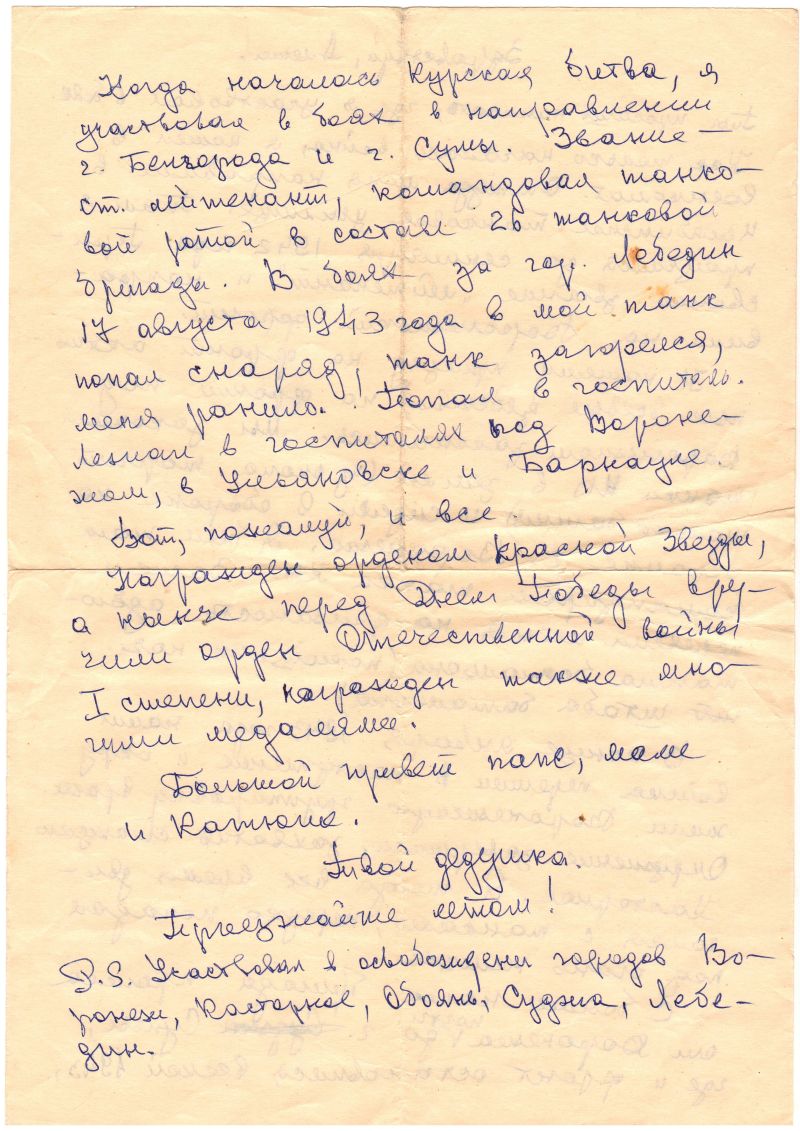 Когда началась Курская битва, я
участвовал в боях в направлении
г. Белгорода и г. Сумы. Звание –
ст. лейтенант, командовал танко-
вой ротой в составе 26 танковой
бригады. В боях за гор. Лебедин
17 августа 1943 года в мой танк
попал снаряд, танк загорелся,
меня ранило. Попал в госпиталь.
Лежал в госпиталях под Вороне-
жом, в Ульяновске и Барнауле.
Вот, пожалуй, и все
Награжден орденом Красной Звезды,
а нынче перед Днем Победы вру-
чили орден Отечественной войны
I степени, награжден также мно-
гими медалями.
Большой привет папе, маме
и Катюше.
Твой дедушка.
Приезжайте летом!
P.S. Участвовал в освобождени городов Во-
ронеж, Касторное, Обоянь, Суджа, Лебе-
дин.